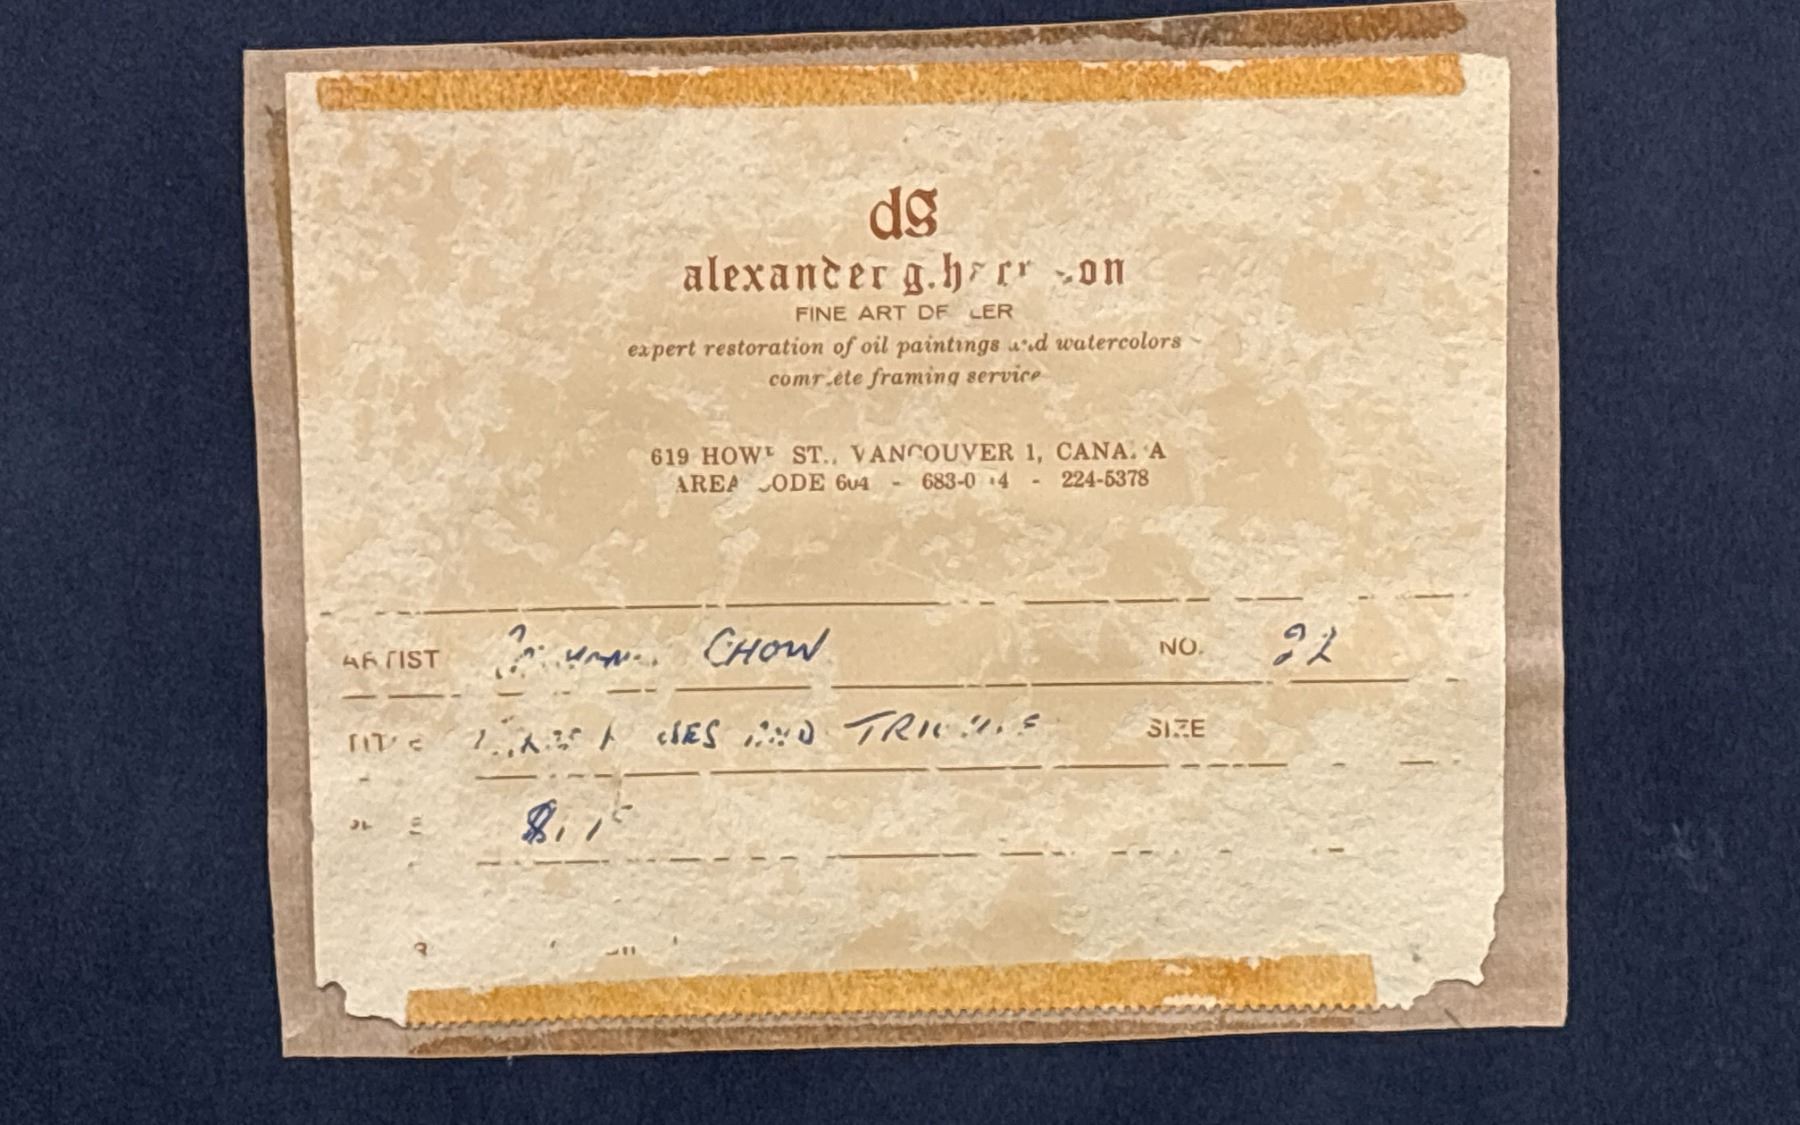 dg
alexander g. harrison
FINE ART DEALER
expert restoration of oil paintings and watercolors
complete framing service
619 HOWE ST., VANCOUVER 1, CANADA
AREA CODE 604 - 224-5378
ARTIST CHOW NO. 22
TITLE AND SIZE
$